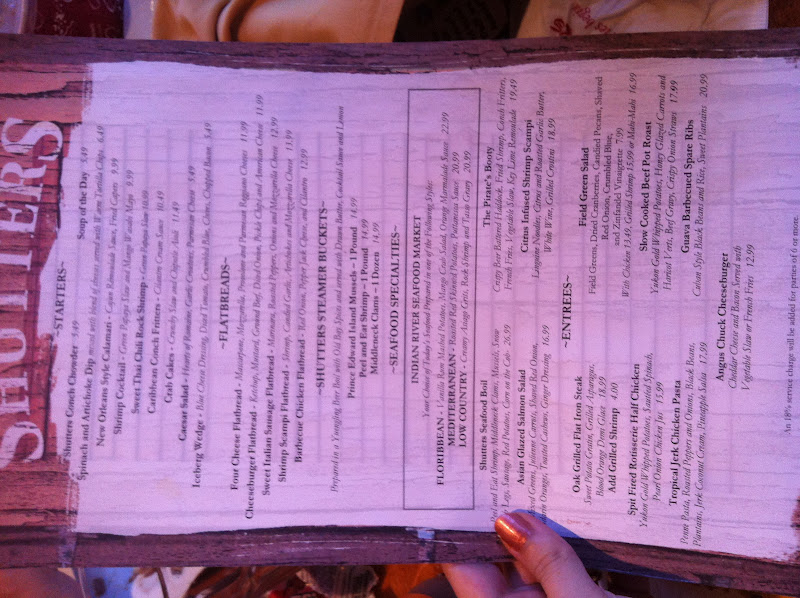 SHUTTERS
~STARTERS~
Shutters Conch Chowder 5.49 Soup of the Day 5.49
Spinach and Artichoke Dip mixed with blend of cheeses served with Warm Tortilla Chips 6.49
New Orleans Style Calamari - Cajun Remoulade Sauce, Fried Capers 9.99
Shrimp Cocktail - Green Papaya Slaw and Mango Wasabi Mayo 9.99
Sweet Thai Chili Rock Shrimp - Green Papaya Slaw 10.99
Caribbean Conch Fritters - Cilantro Cream Sauce 10.49
Crab Cakes - Crunchy Slaw and Chipotle Aioli 11.49
Caesar Salad - Hearts of Romaine, Garlic Croutons, Parmesan Cheese 5.49
Iceberg Wedge - Blue Cheese Dressing, Diced Tomato, Crumbled Blue, Chives, Chopped Bacon 5.49
~FLATBREADS~
Four Cheese Flatbread - Mascarpone, Mozzarella, Provolone and Parmesan Reggiano Cheeses 11.99
Cheeseburger Flatbread - Ketchup, Mustard, Ground Beef, Diced Onion, Pickle Chips and American Cheese 11.99
Sweet Italian Sausage Flatbread - Marinara, Roasted Peppers, Onions and Mozzarella Cheese 12.99
Shrimp Scampi Flatbread - Shrimp, Candied Garlic, Artichokes and Mozzarella Cheese 13.99
Barbecue Chicken Flatbread - Red Onion, Pepper Jack Cheese, and Cilantro 12.99
~SHUTTERS STEAMER BUCKETS~
Prepared in a Yuengling Beer Broth with Old Bay Spices and served with Drawn Butter, Cocktail Sauce and Lemon
Prince Edward Island Mussels - 1 Pound 14.99
Peel and Eat Shrimp - 1 Pound 14.99
Middleneck Clams - 1 Dozen 14.99
~SEAFOOD SPECIALTIES~
INDIAN RIVER SEAFOOD MARKET
Your Choice of Today's Seafood Prepared in one of the Following Styles:
FLORIBBEAN - Vanilla Bean Mashed Potatoes, Mango Crab Salad, Orange Marmalade Sauce 22.99
MEDITERRANEAN - Roasted Red Skinned Potatoes, Puttanesca Sauce 20.99
LOW COUNTRY - Creamy Asago Grits, Rock Shrimp and Tasso Gravy 20.99
Shutters Seafood Boil
and Eat Shrimp, Middleneck Clams, Mussels, Snow
Legs, Sausage, Red Potatoes, Corn on the Cob 26.99
The Pirate's Booty
Crispy Beer Battered Haddock, Fried Shrimp, Conch Fritters,
French Fries, Vegetable Slaw, Key Lime Remoulade 19.49
Asian Glazed Salmon Salad
Greens, Julienne Carrots, Shaved Red Onion,
Oranges, Toasted Cashews, Ginger Dressing 16.99
Citrus Infused Shrimp Scampi
Linguine Noodles, Citrus and Roasted Garlic Butter,
White Wine, Grilled Crostini 18.99
~ENTREES~
Oak Grilled Flat Iron Steak
Sweet Potato Gratin, Grilled Asparagus,
Blood Orange Demi Glace 18.99
Add Grilled Shrimp 4.00
Field Green Salad
Field Greens, Dried Cranberries, Candied Pecans, Shaved
Red Onion, Crumbled Blue,
and Zinfandel Vinaigrette 7.99
With Chicken 13.49, Grilled Shrimp 15.99 or Mahi-Mahi 16.99
Spit Fired Rotisserie Half Chicken
Yukon Gold Whipped Potatoes, Sautéed Spinach,
Pearl Onion Chicken Jus 15.99
Slow Cooked Beef Pot Roast
Yukon Gold Whipped Potatoes, Honey Glazed Carrots and
Haricot Verts, Beef Gravy, Crispy Onion Straws 17.99
Tropical Jerk Chicken Pasta
Penne Pasta, Roasted Peppers and Onions, Black Beans,
Plantains, Jerk Coconut Cream, Pineapple Salsa 17.99
Guava Barbecued Spare Ribs
Cuban Style Black Beans and Rice, Sweet Plantains 20.99
Angus Chuck Cheeseburger
Cheddar Cheese and Bacon Served with
Vegetable Slaw or French Fries 12.99
An 18% service charge will be added for parties of 6 or more.